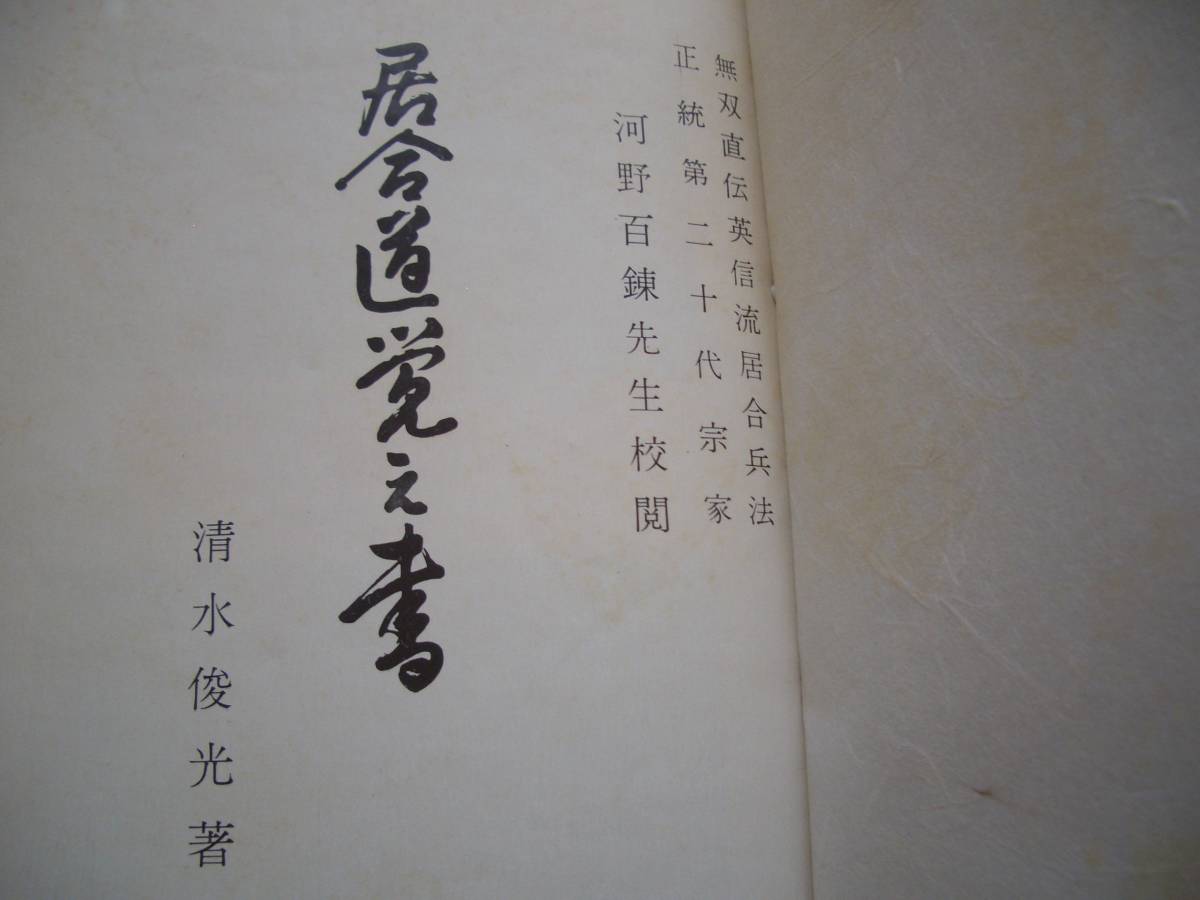 無双直伝英信流居合兵法
正統第二十代宗家
河野百錬先生校閲
居合道覚え書
清水俊光著